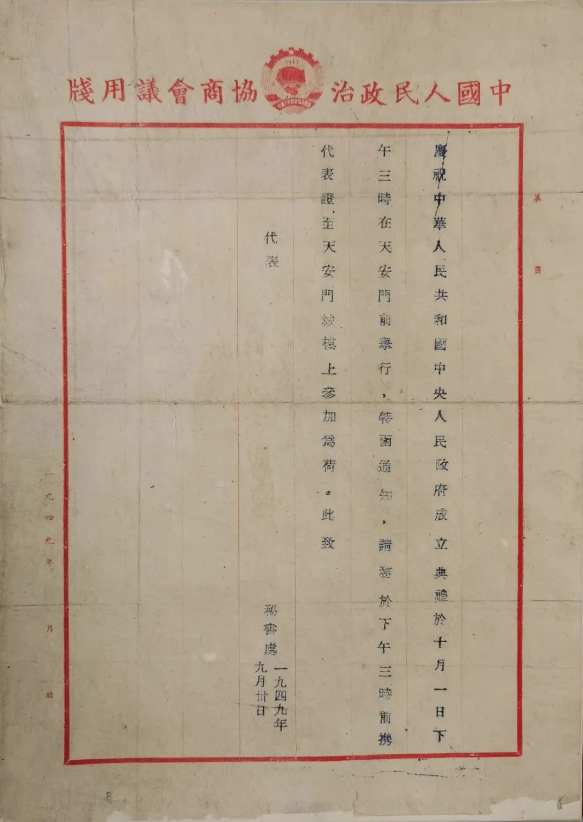 中國人民政治協商會議用牋
第 頁
慶祝中華人民共和國中央人民政府成立典禮於十月一日下
午三時在天安門前舉行，特函通知，請務於下午三時前携
代表證至天安門城樓上參加為荷。此致
代表
秘書處
一九四九年
九月卅日
一九四九年 月 日